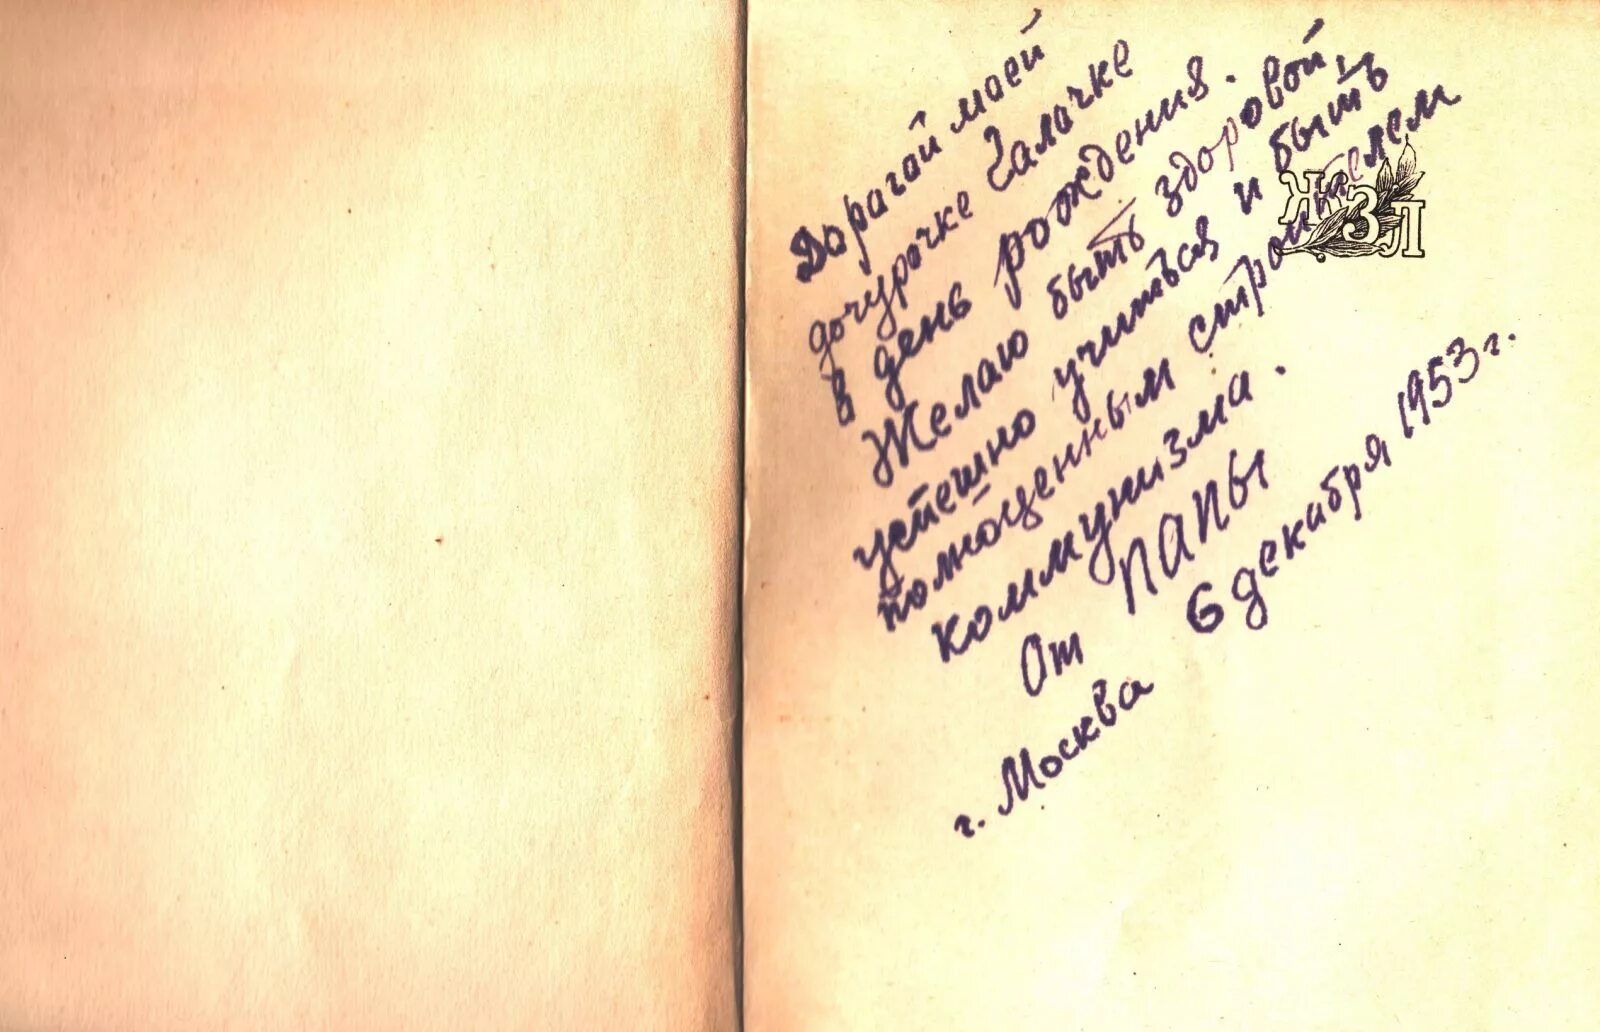 Дорагай маей
дочурочке Галочке
в день рождения.
Желаю быть здоровой,
успешно учиться и быть
полноценным строителем
коммунизма.
От ПАПЫ
г. Москва 6 декабря 1953 г.
ЖЗЛ